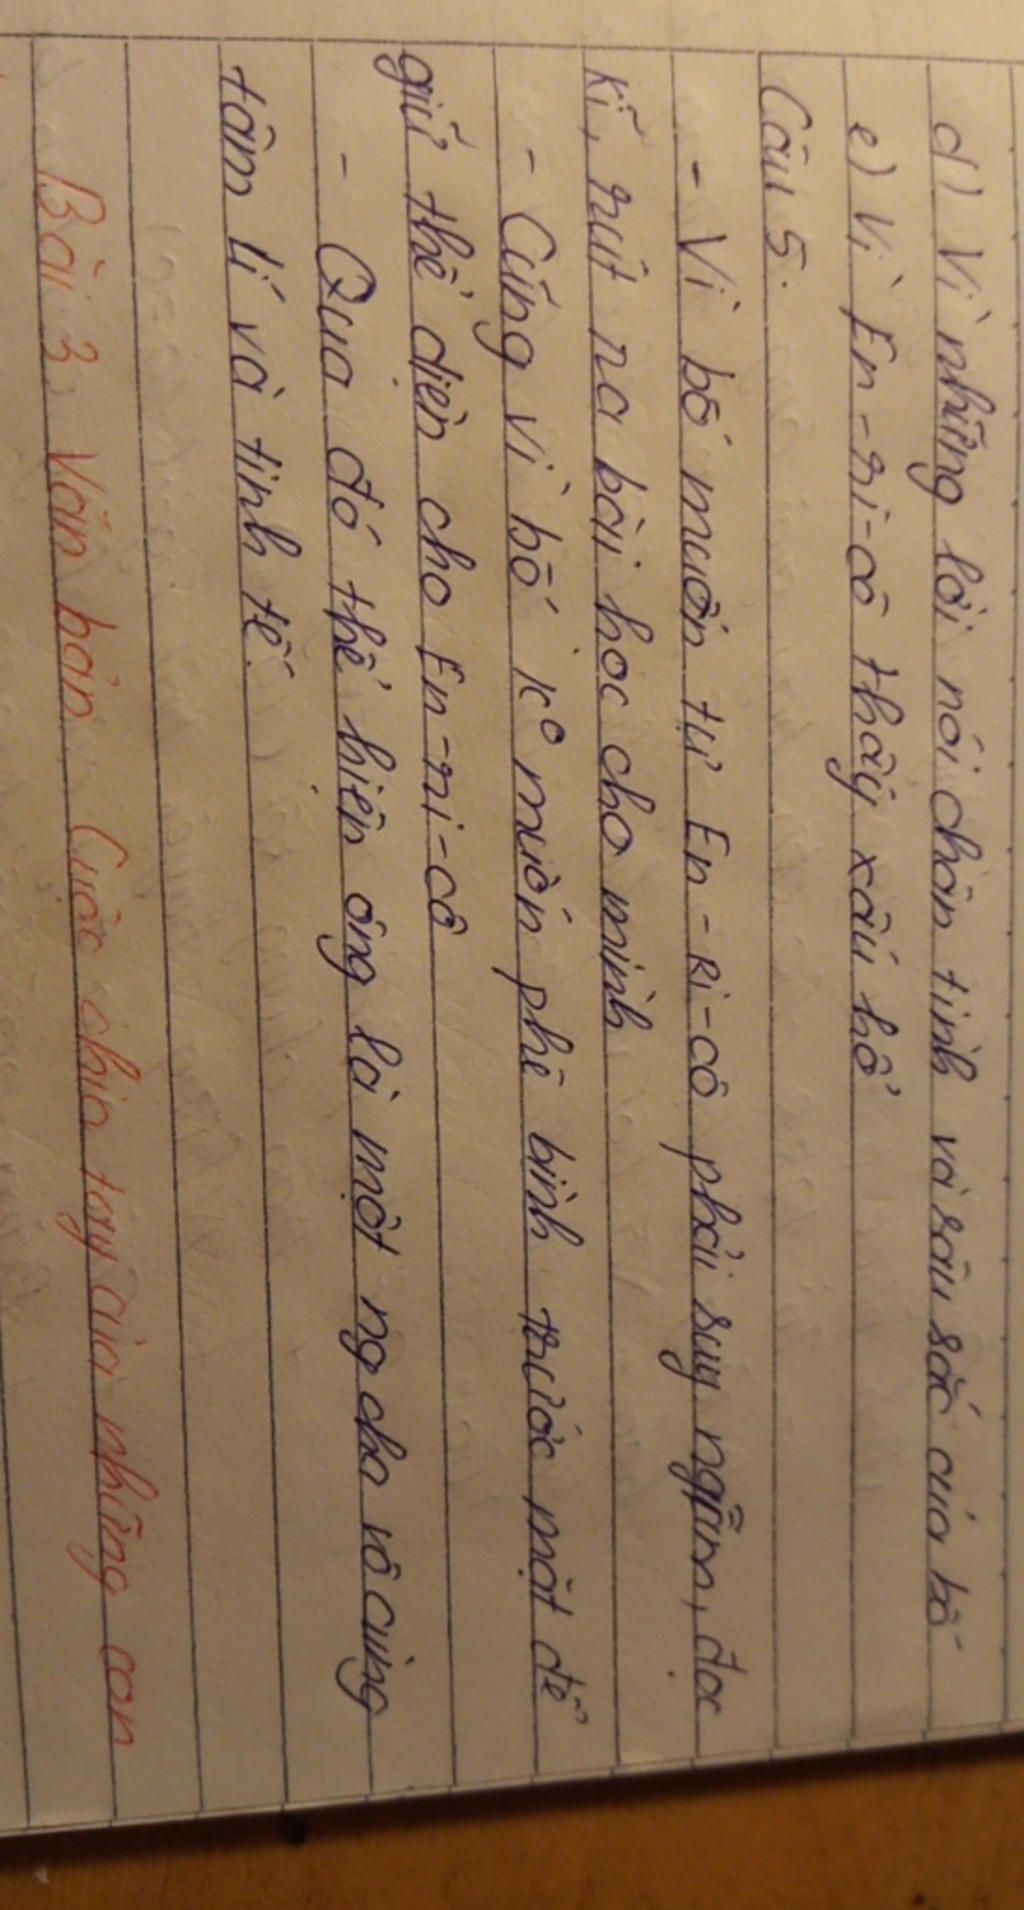 d) Vì những lời nói chân tình và sâu sắc của bố
e) Vì En-ri-cô thấy xấu hổ
Câu 5.
- Vì bố muốn tự En-Ri-cô phải suy ngẫm, đọc
kĩ, rút ra bài học cho mình
- Cũng vì bố kº muốn phê bình trước mặt để
giữ thể diện cho En-ri-cô
- Qua đó thể hiện ông là một ng cha vô cùng
tâm lí và tinh tế.
Bài 3. Văn bản Cuộc chia tay của những con